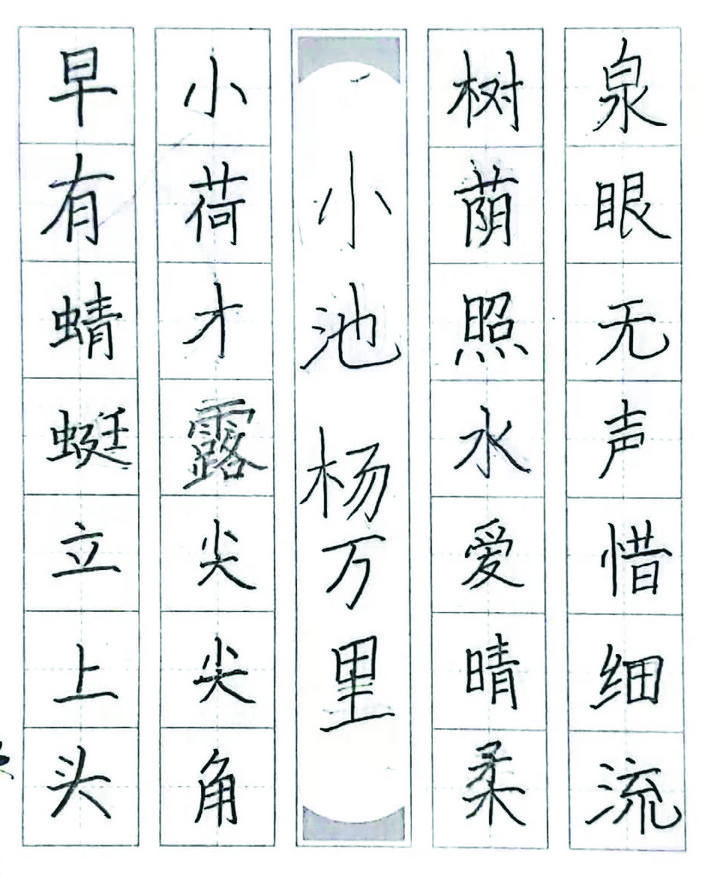 泉眼无声惜细流
树荫照水爱晴柔
小池 杨万里
小荷才露尖尖角
早有蜻蜓立上头